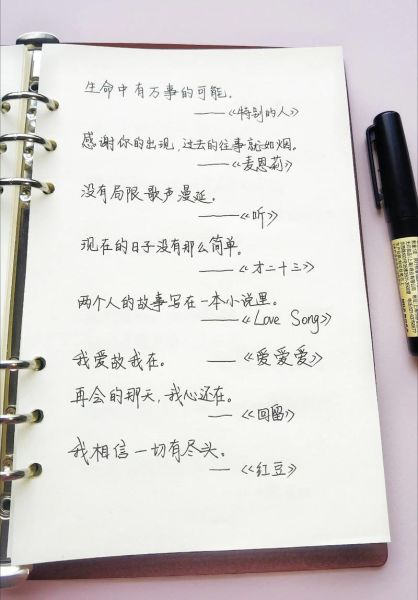 生命中有万事的可能。
——《特别的人》
感谢你的出现，过去的往事就如烟。
——《麦恩莉》
没有局限歌声漫延。
——《听》
现在的日子没有那么简单。
——《才二十三》
两个人的故事写在一本小说里。
——《Love Song》
我爱故我在。 ——《爱爱爱》
再会的那天，我心还在。
——《回留》
我相信一切有尽头。
——《红豆》